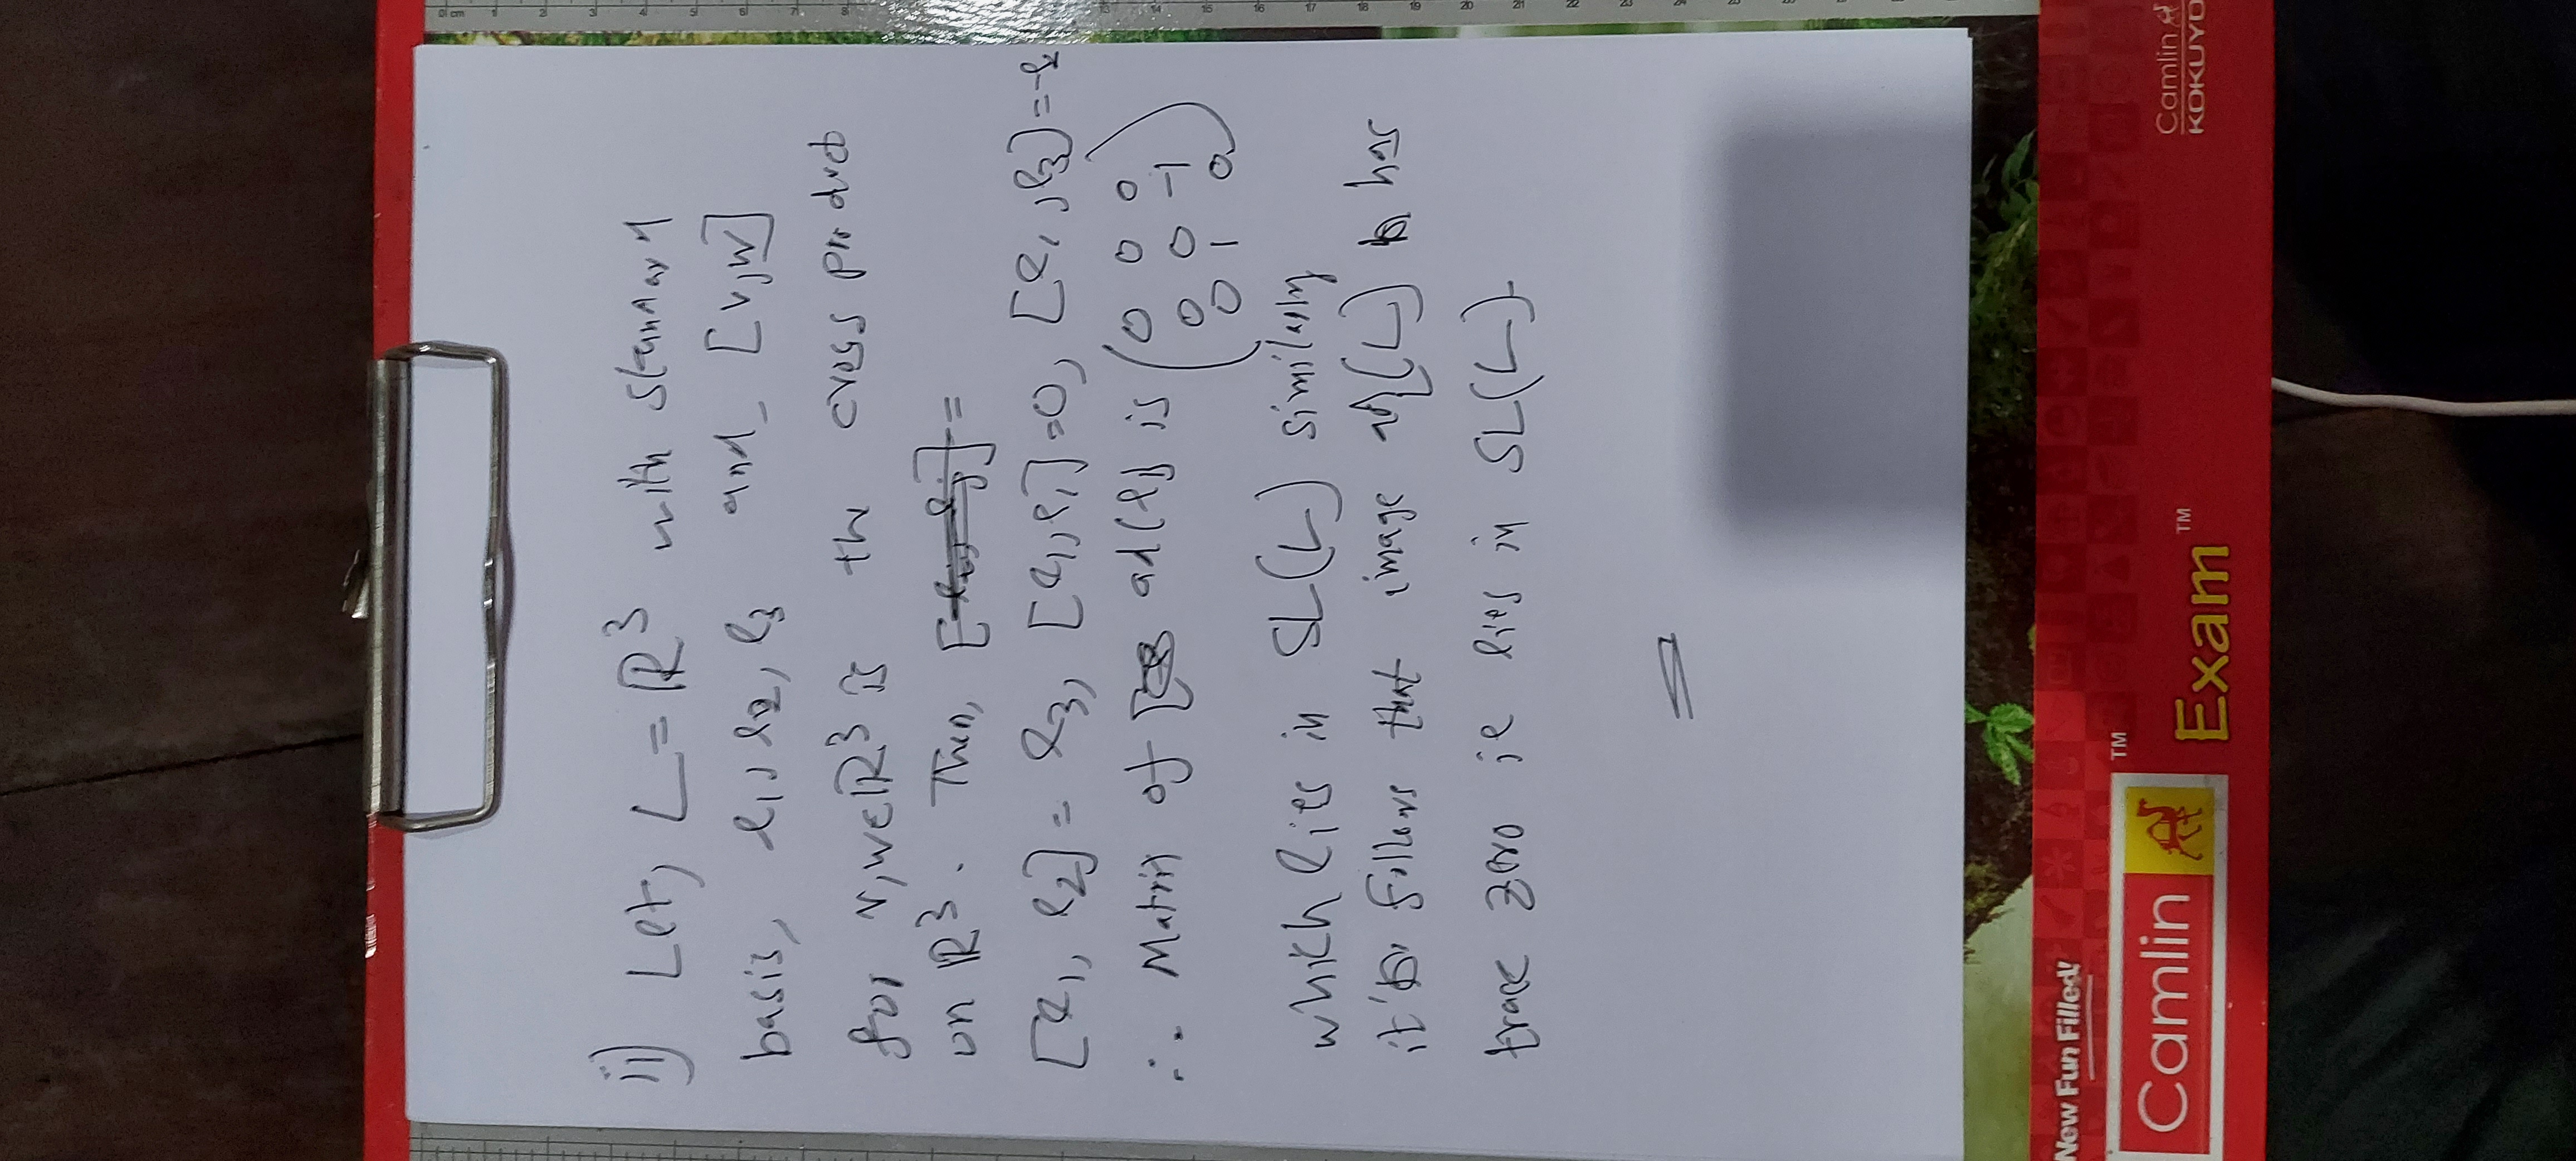 ii) Let, L = ℝ³ with standard
basis, e₁, e₂, e₃ and [v,w]
for v,w∈ℝ³ is the cross product
on ℝ³. Then, [e_i, e_j] =
[e₁, e₂] = e₃, [e₁,e₁]=0, [e₁,e₃]=-e₂
∴ Matrix of ad(e₁) is (0 0 0
0 0 -1
0 1 0)
which lies in SL(L) similarly
it follows that image of (L) has
trace zero ie lies in SL(L).
New Fun Filled!
Camlin™
Exam™
Camlin
KOKUYO